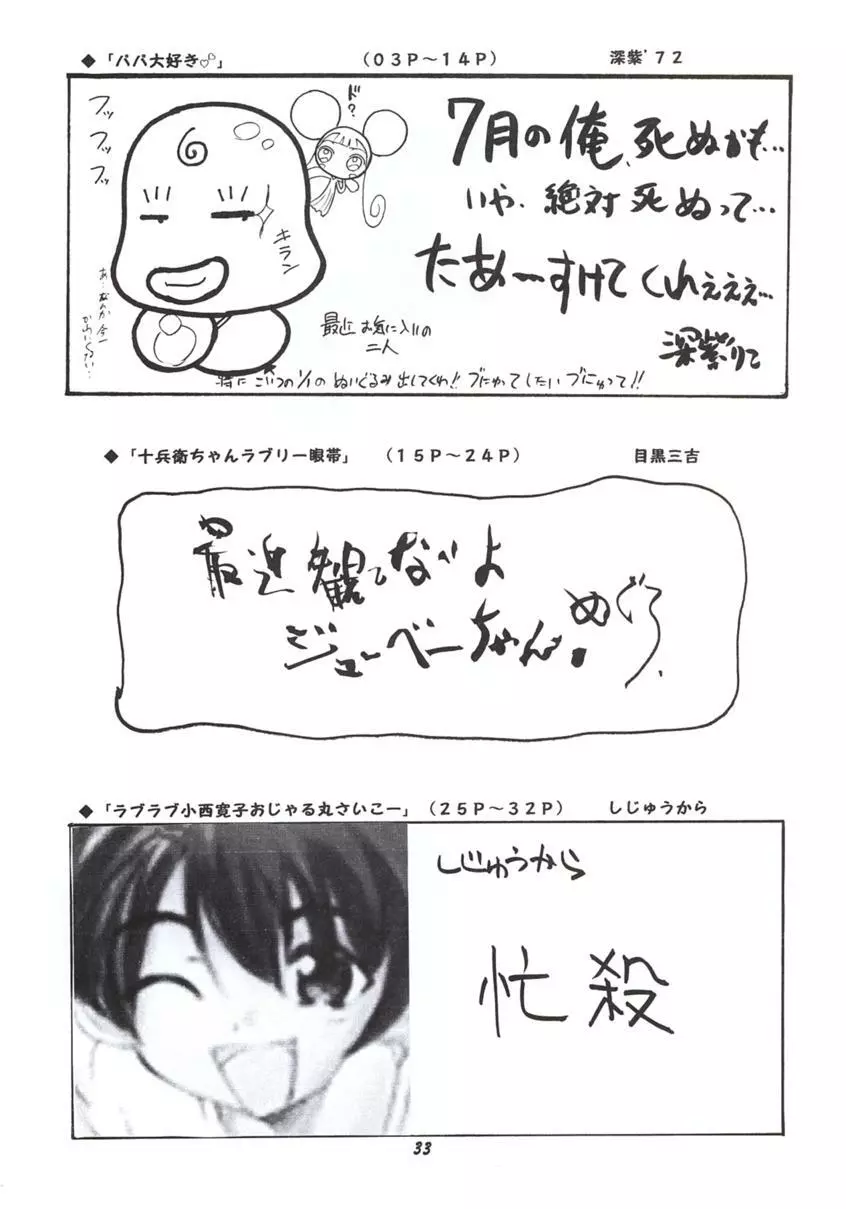 ◆「パパ大好き♡」 (03P〜14P) 深紫'72
フッ
フッ
フッ
ド?
キラン
7月の俺、死ぬかも…
いや、絶対死ぬって…
たあーすけてくれぇぇぇ…
深紫りこ
最近お気に入りの
二人
特にこいつの1/1のぬいぐるみ出してくれ!!プにゅってしたいプにゅって!!
◆「十兵衛ちゃんラブリー眼帯」 (15P〜24P) 目黒三吉
最近観てないよ
ジューベーちゃん。めぐろ
◆「ラブラブ小西寛子おじゃる丸さいこー」 (25P〜32P) しじゅうから
しじゅうから
忙殺
33